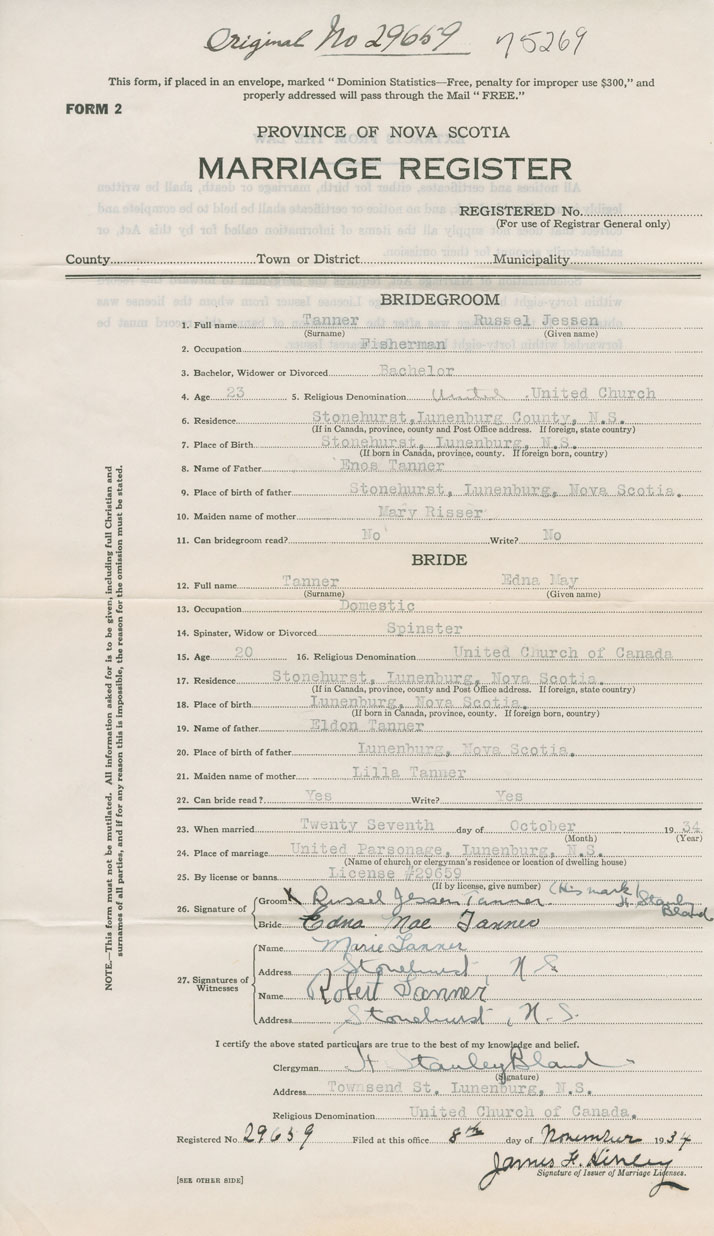 Original No 29659 75269
This form, if placed in an envelope, marked " Dominion Statistics—Free, penalty for improper use $300," and
properly addressed will pass through the Mail " FREE."
FORM 2
PROVINCE OF NOVA SCOTIA
MARRIAGE REGISTER
REGISTERED No.
(For use of Registrar General only)
County Town or District Municipality
BRIDEGROOM
1. Full name Tanner Russel Jessen
(Surname) (Given name)
2. Occupation Fisherman
3. Bachelor, Widower or Divorced Bachelor
4. Age 23 5. Religious Denomination United United Church
6. Residence Stonehurst, Lunenburg County, N.S.
(If in Canada, province, county and Post Office address. If foreign, state country)
7. Place of Birth Stonehurst, Lunenburg, N.S.
(If born in Canada, province, county. If foreign born, country)
8. Name of Father Enos Tanner
9. Place of birth of father Stonehurst, Lunenburg, Nova Scotia.
10. Maiden name of mother Mary Risser
11. Can bridegroom read? No Write? No
BRIDE
12. Full name Tanner Edna May
(Surname) (Given name)
13. Occupation Domestic
14. Spinster, Widow or Divorced Spinster
15. Age 20 16. Religious Denomination United Church of Canada
17. Residence Stonehurst, Lunenburg, Nova Scotia.
(If in Canada, province, county and Post Office address. If foreign, state country)
18. Place of birth Lunenburg, Nova Scotia.
(If born in Canada, province, county. If foreign born, country)
19. Name of father Eldon Tanner
20. Place of birth of father Lunenburg, Nova Scotia.
21. Maiden name of mother Lilla Tanner
22. Can bride read? Yes Write? Yes
23. When married Twenty Seventh day of October 1934
(Month) (Year)
24. Place of marriage United Parsonage, Lunenburg, N.S.
(Name of church or clergyman's residence or location of dwelling house)
25. By license or banns License #29659
(If by license, give number) (His mark)
26. Signature of Groom X Russel Jessen Tanner H. Stanley Bland
Bride Edna Mae Tanner
27. Signatures of Witnesses
Name Marie Tanner
Address Stonehurst, N S
Name Robert Tanner
Address Stonehurst, N.S.
I certify the above stated particulars are true to the best of my knowledge and belief.
Clergyman H Stanley Bland
(Signature)
Address Townsend St. Lunenburg, N.S.
Religious Denomination United Church of Canada.
Registered No. 29659 Filed at this office 8th day of November 1934
James H. Hinley
Signature of Issuer of Marriage Licenses.
[SEE OTHER SIDE]
NOTE.—This form must not be mutilated. All information asked for is to be given, including full Christian and
surnames of all parties, and if for any reason this is impossible, the reason for the omission must be stated.